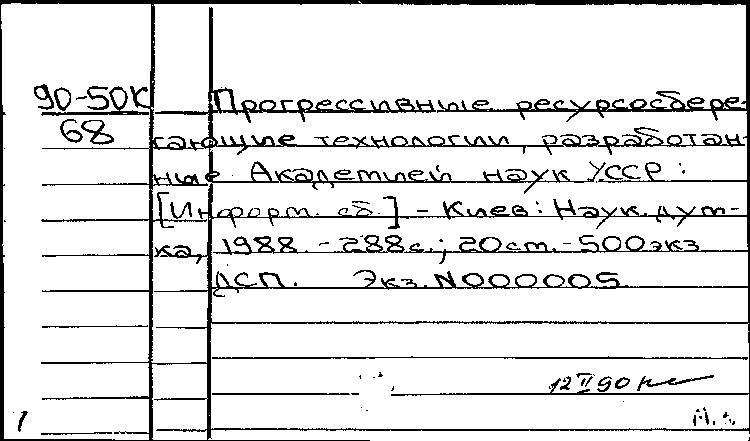 90-50К
68
Прогрессивные ресурсосбере-
гающие технологии, разработан-
ные Академией наук УССР:
[Информ. сб.] - Киев: Наук. дум-
ка, 1988. - 288с.; 20см. - 500экз
ДСП. Экз. N000005
12 II 90
1